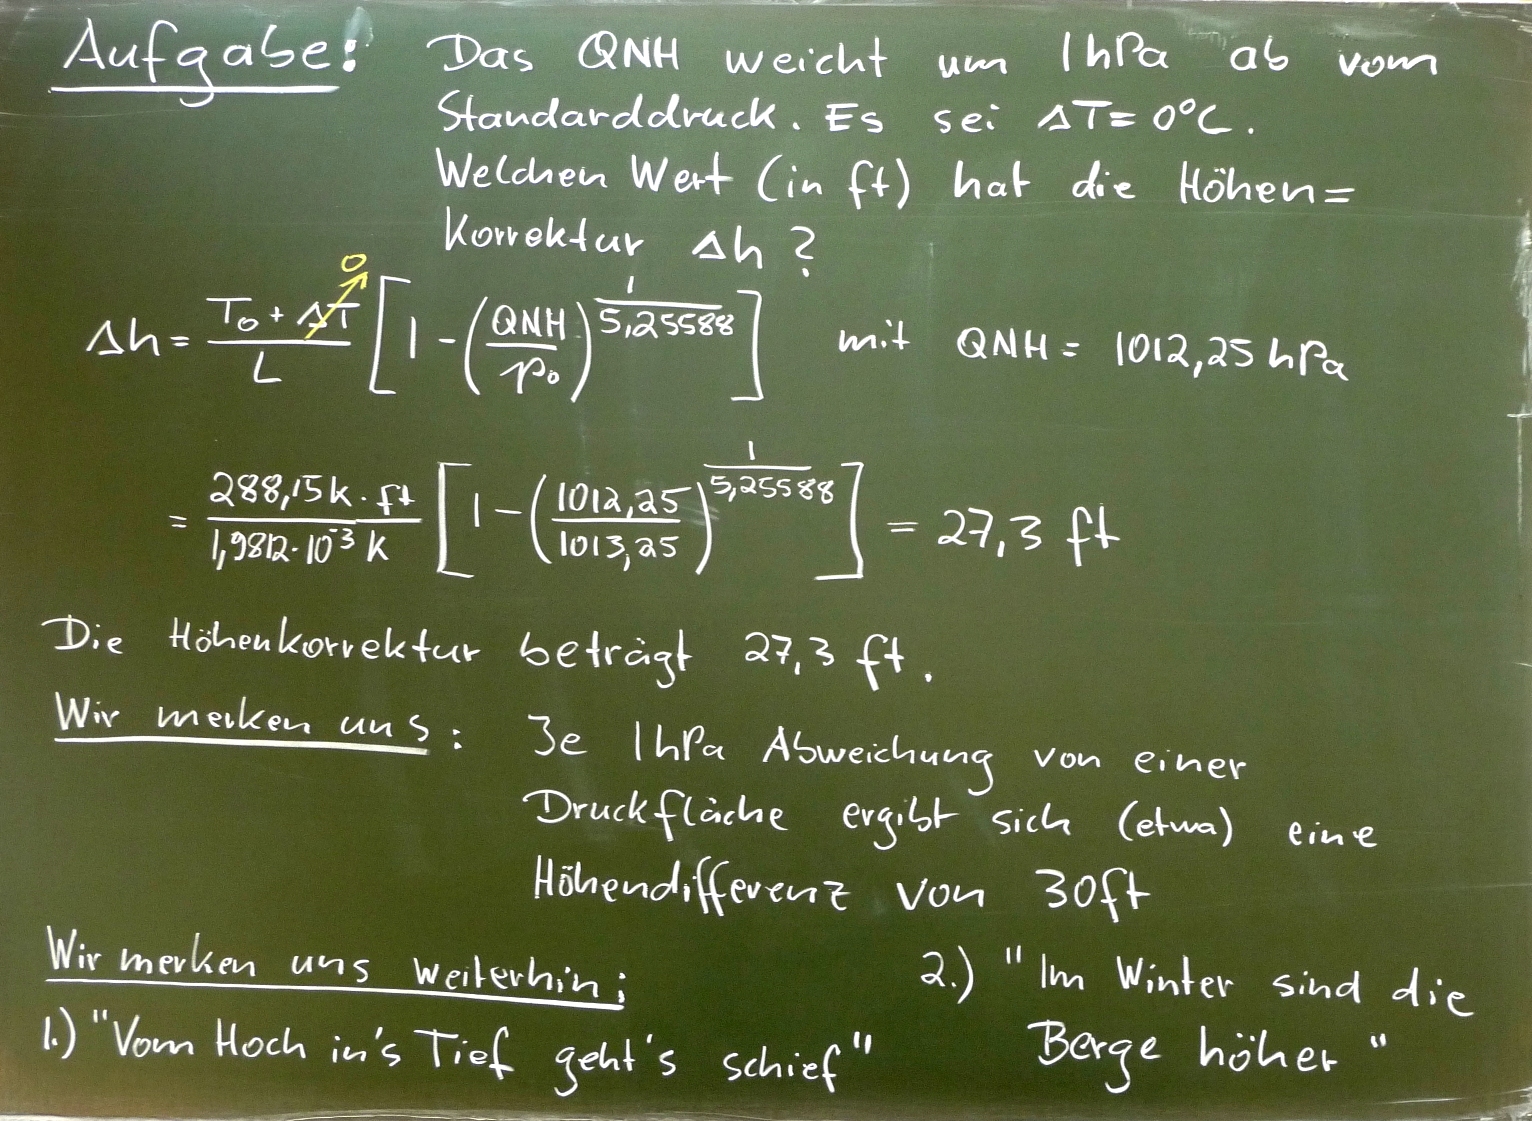 Aufgabe: Das QNH weicht um 1hPa ab vom
Standarddruck. Es sei ΔT = 0°C.
Welchen Wert (in ft) hat die Höhen=
Korrektur Δh ?
Δh = (T₀ + ΔT⁰)/L [1 - (QNH/p₀)^(1/5,25588)] mit QNH = 1012,25 hPa
= (288,15K · ft)/(1,9812·10⁻³ K) [1 - (1012,25/1013,25)^(1/5,25588)] = 27,3 ft
Die Höhenkorrektur beträgt 27,3 ft.
Wir merken uns: Je 1hPa Abweichung von einer
Druckfläche ergibt sich (etwa) eine
Höhendifferenz von 30ft
Wir merken uns weiterhin:
1.) "Vom Hoch in's Tief geht's schief"
2.) "Im Winter sind die
Berge höher"